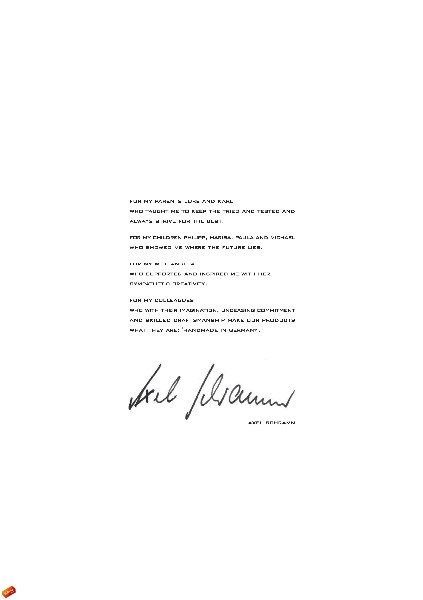 FOR MY PARENTS LORE AND KARL
WHO TAUGHT ME TO KEEP THE TRIED AND TESTED AND
ALWAYS STRIVE FOR THE BEST.
FOR MY CHILDREN PHILIPP, MARISA, PAULA AND MICHAEL
WHO SHOWED ME WHERE THE FUTURE LIES.
FOR MY WIFE
WHO SUPPORTED AND INSPIRED ME WITH HER
SYMPATHETIC CREATIVITY.
FOR MY COLLEAGUES
WHO WITH THEIR IMAGINATION, UNCEASING COMMITMENT
AND SKILLED CRAFTSMANSHIP MAKE OUR PRODUCTS
WHAT THEY ARE: 'HANDMADE IN GERMANY'.
Axel Schramm
AXEL SCHRAMM